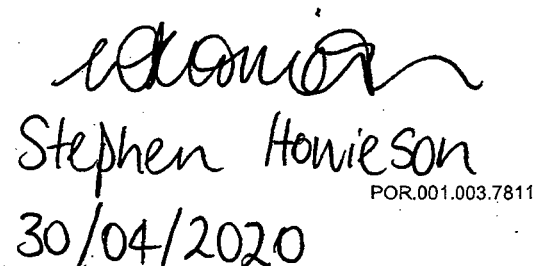 Stephen Howieson
POR.001.003.7811
30/04/2020